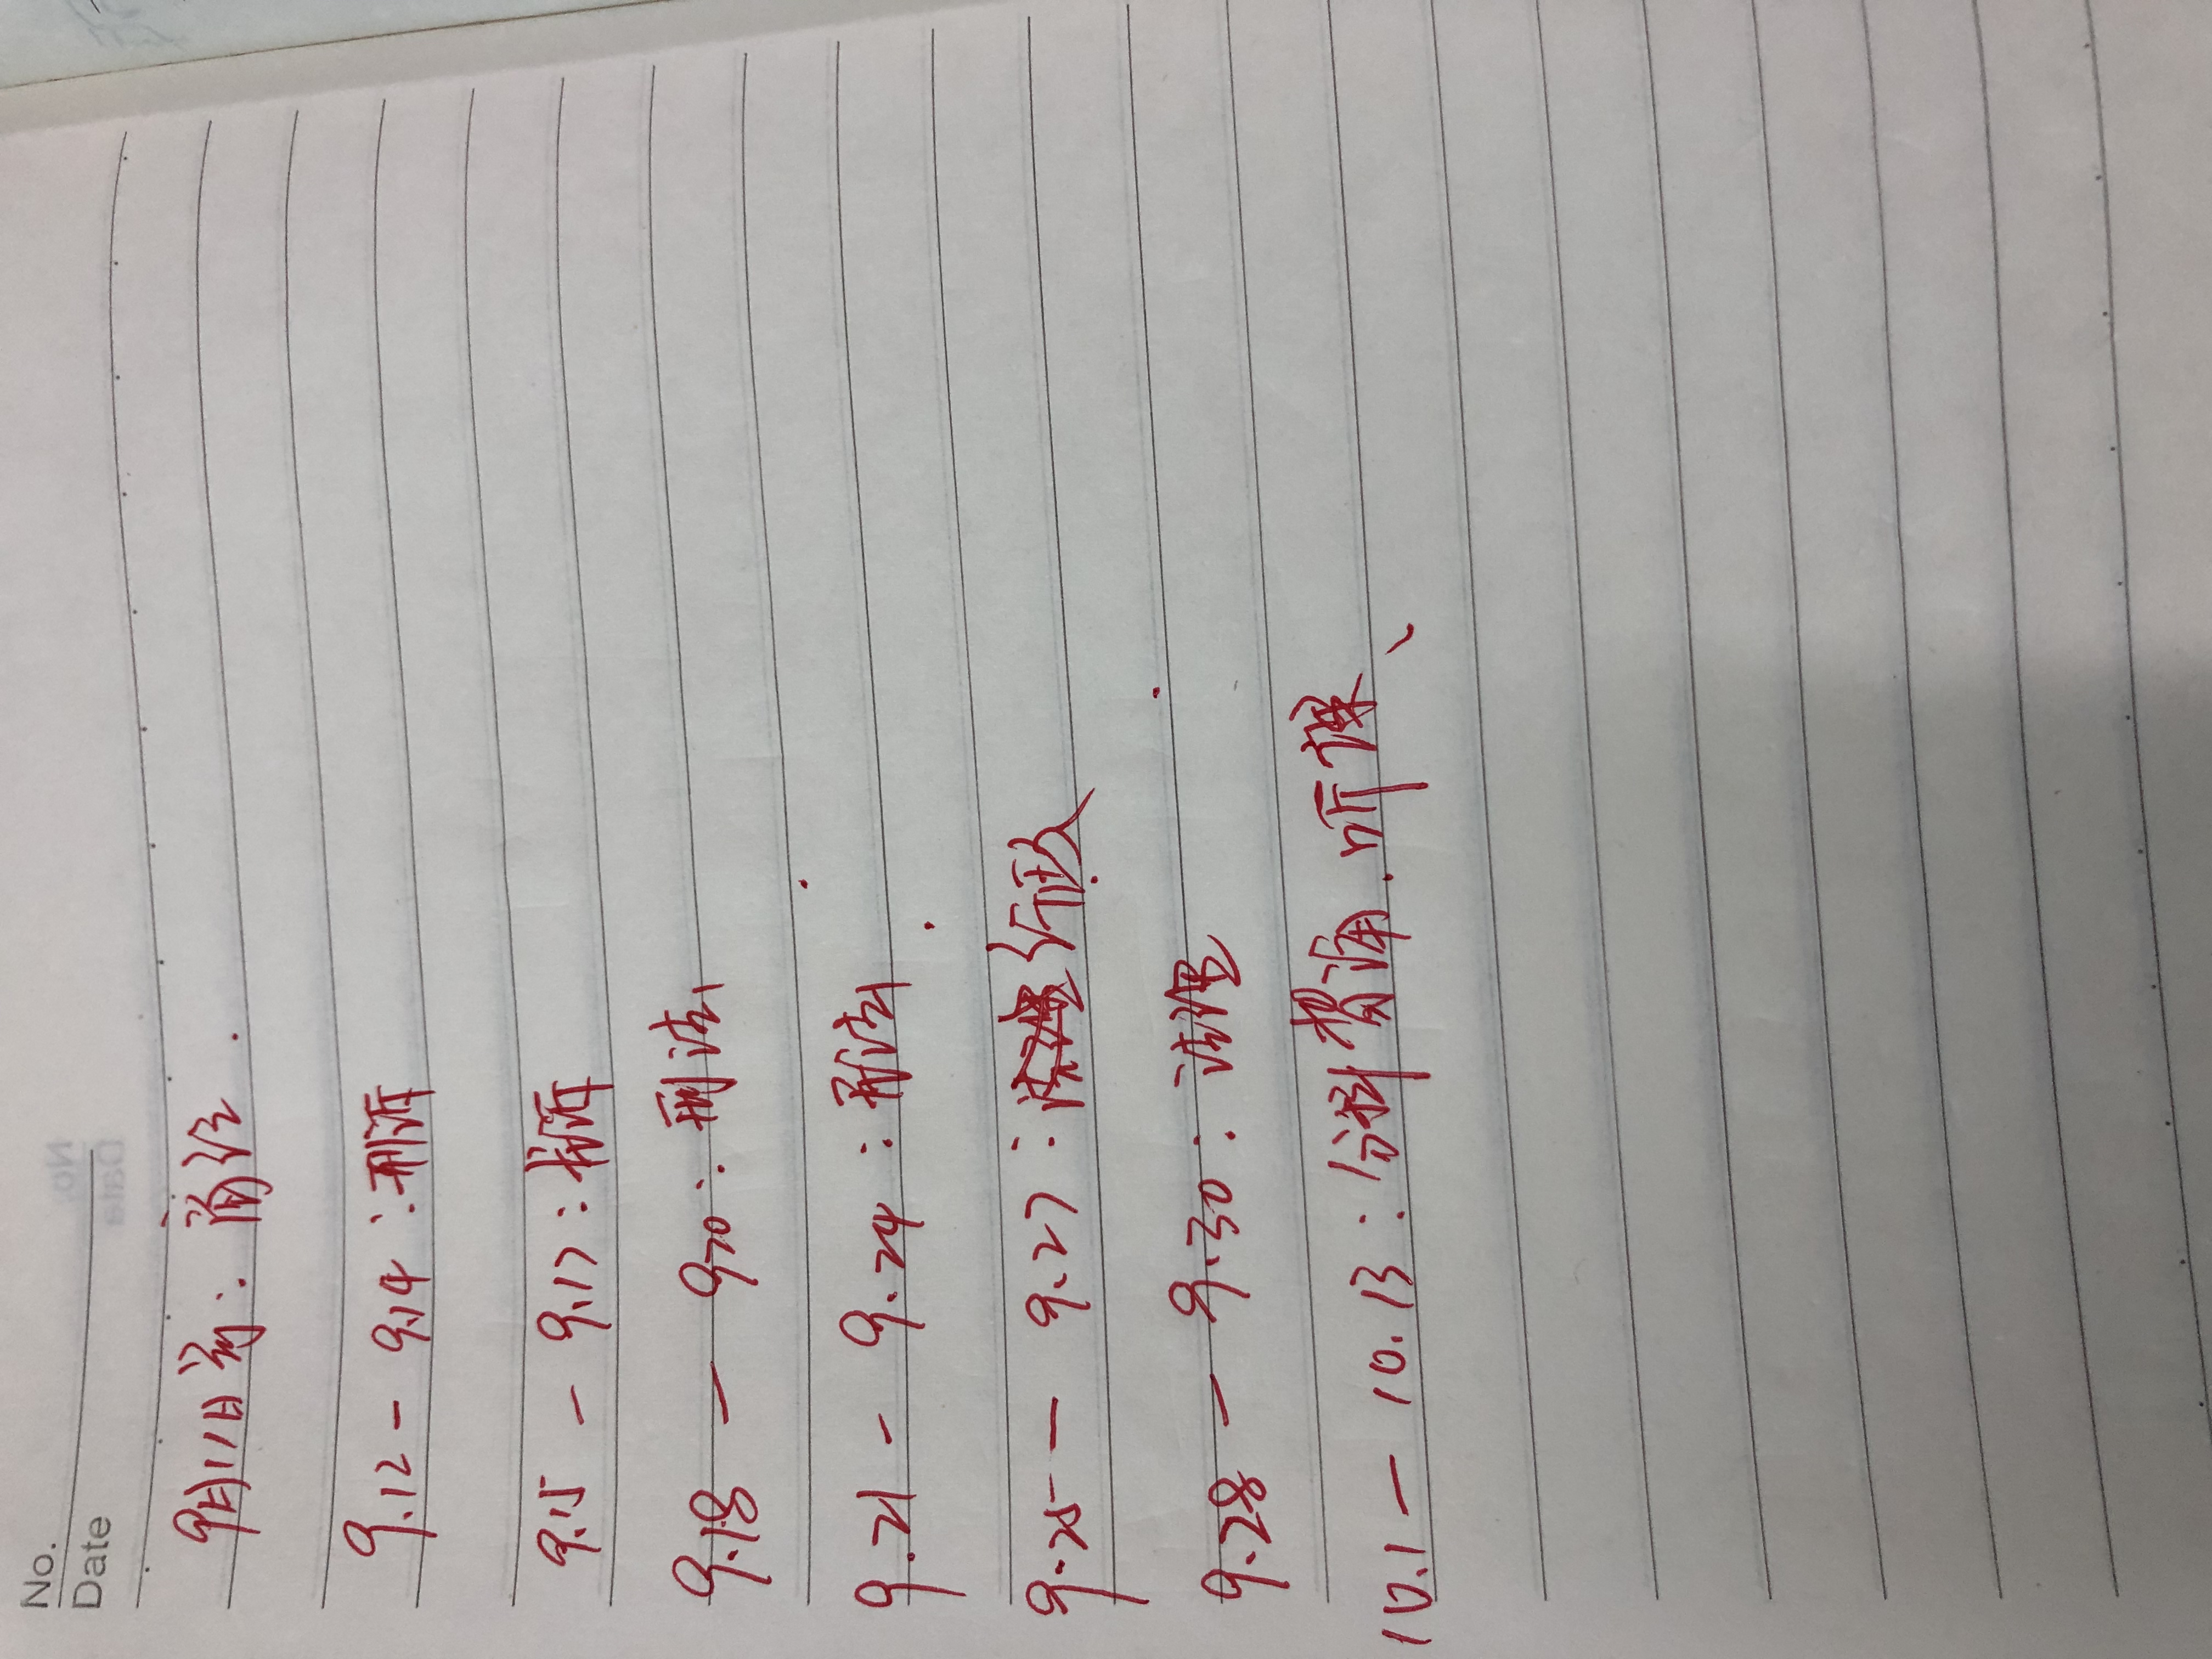 No.
Date
9月11日前：商经.
9.12-9.14：刑诉
9.15-9.17：民诉
9.18-9.20：刑法
9.21-9.24：民法.
9.25-9.27：行政
9.28-9.30：理论
10.1-10.13：分科贯通.听课、